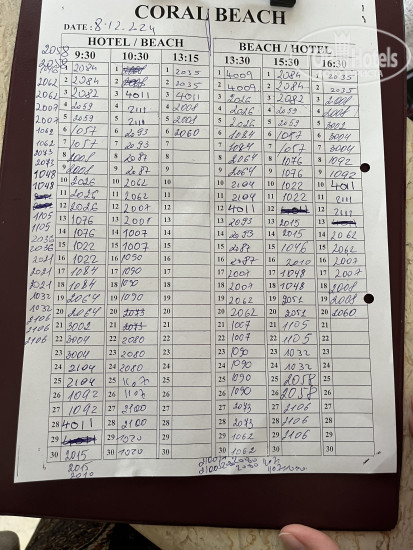 CORAL BEACH
DATE: 8.12.224
HOTEL / BEACH
BEACH / HOTEL
9:30 10:30 13:15 13:30 15:30 16:30
1 2084 1 1 2035 1 4009 1 2084 1 2035
2 2084 2 2 2035 2 4009 2 2084 2 2035
3 2082 3 4011 3 4011 3 2026 3 2082 3 2008
4 2059 4 2111 4 2008 4 2026 4 2059 4 2008
5 2059 5 2111 5 2008 5 2026 5 2059 5 3002
6 1057 6 2093 6 2060 6 1084 6 1057 6 3004
7 1057 7 2093 7 7 1084 7 1057 7 3004
8 2008 8 2087 8 8 2064 8 1076 8 1092
9 2008 9 2087 9 9 2064 9 1076 9 1092
10 2026 10 2062 10 10 2104 10 1022 10 4011
11 2026 11 2062 11 11 2104 11 1022 11 2111
12 2026 12 2007 12 12 4011 12 12 2111
13 1076 13 2007 13 13 2093 13 2015 13
14 1076 14 1007 14 14 2093 14 2015 14 2062
15 1022 15 1007 15 15 2087 15 1046 15 2062
16 1022 16 1090 16 16 2087 16 2010 16 2007
17 1084 17 1090 17 17 2007 17 1048 17 2007
18 1084 18 1090 18 18 2007 18 1048 18 2008
19 2064 19 1090 19 19 2062 19 2051 19 2008
20 2064 20 2073 20 20 2062 20 2051 20 2060
21 3002 21 2073 21 21 1007 21 1105 21
22 3004 22 2080 22 22 1007 22 1105 22
23 3004 23 2080 23 23 1090 23 1032 23
24 2104 24 2080 24 24 1090 24 1032 24
25 2104 25 25 25 1090 25 2058 25
26 1092 26 26 26 1090 26 2058 26
27 1092 27 2100 27 27 2073 27 2106 27
28 4011 28 2100 28 28 2073 28 2106 28
29 29 1020 29 29 1062 29 2106 29
30 2015 30 1020 30 30 1062 30 30
2015
2010
2058
2058
1046
2042
2007
2007
1062
1062
2073
2073
1048
1048
1105
1105
2035
2035
2021
2021
2021
1032
1032
2106
2106
2106